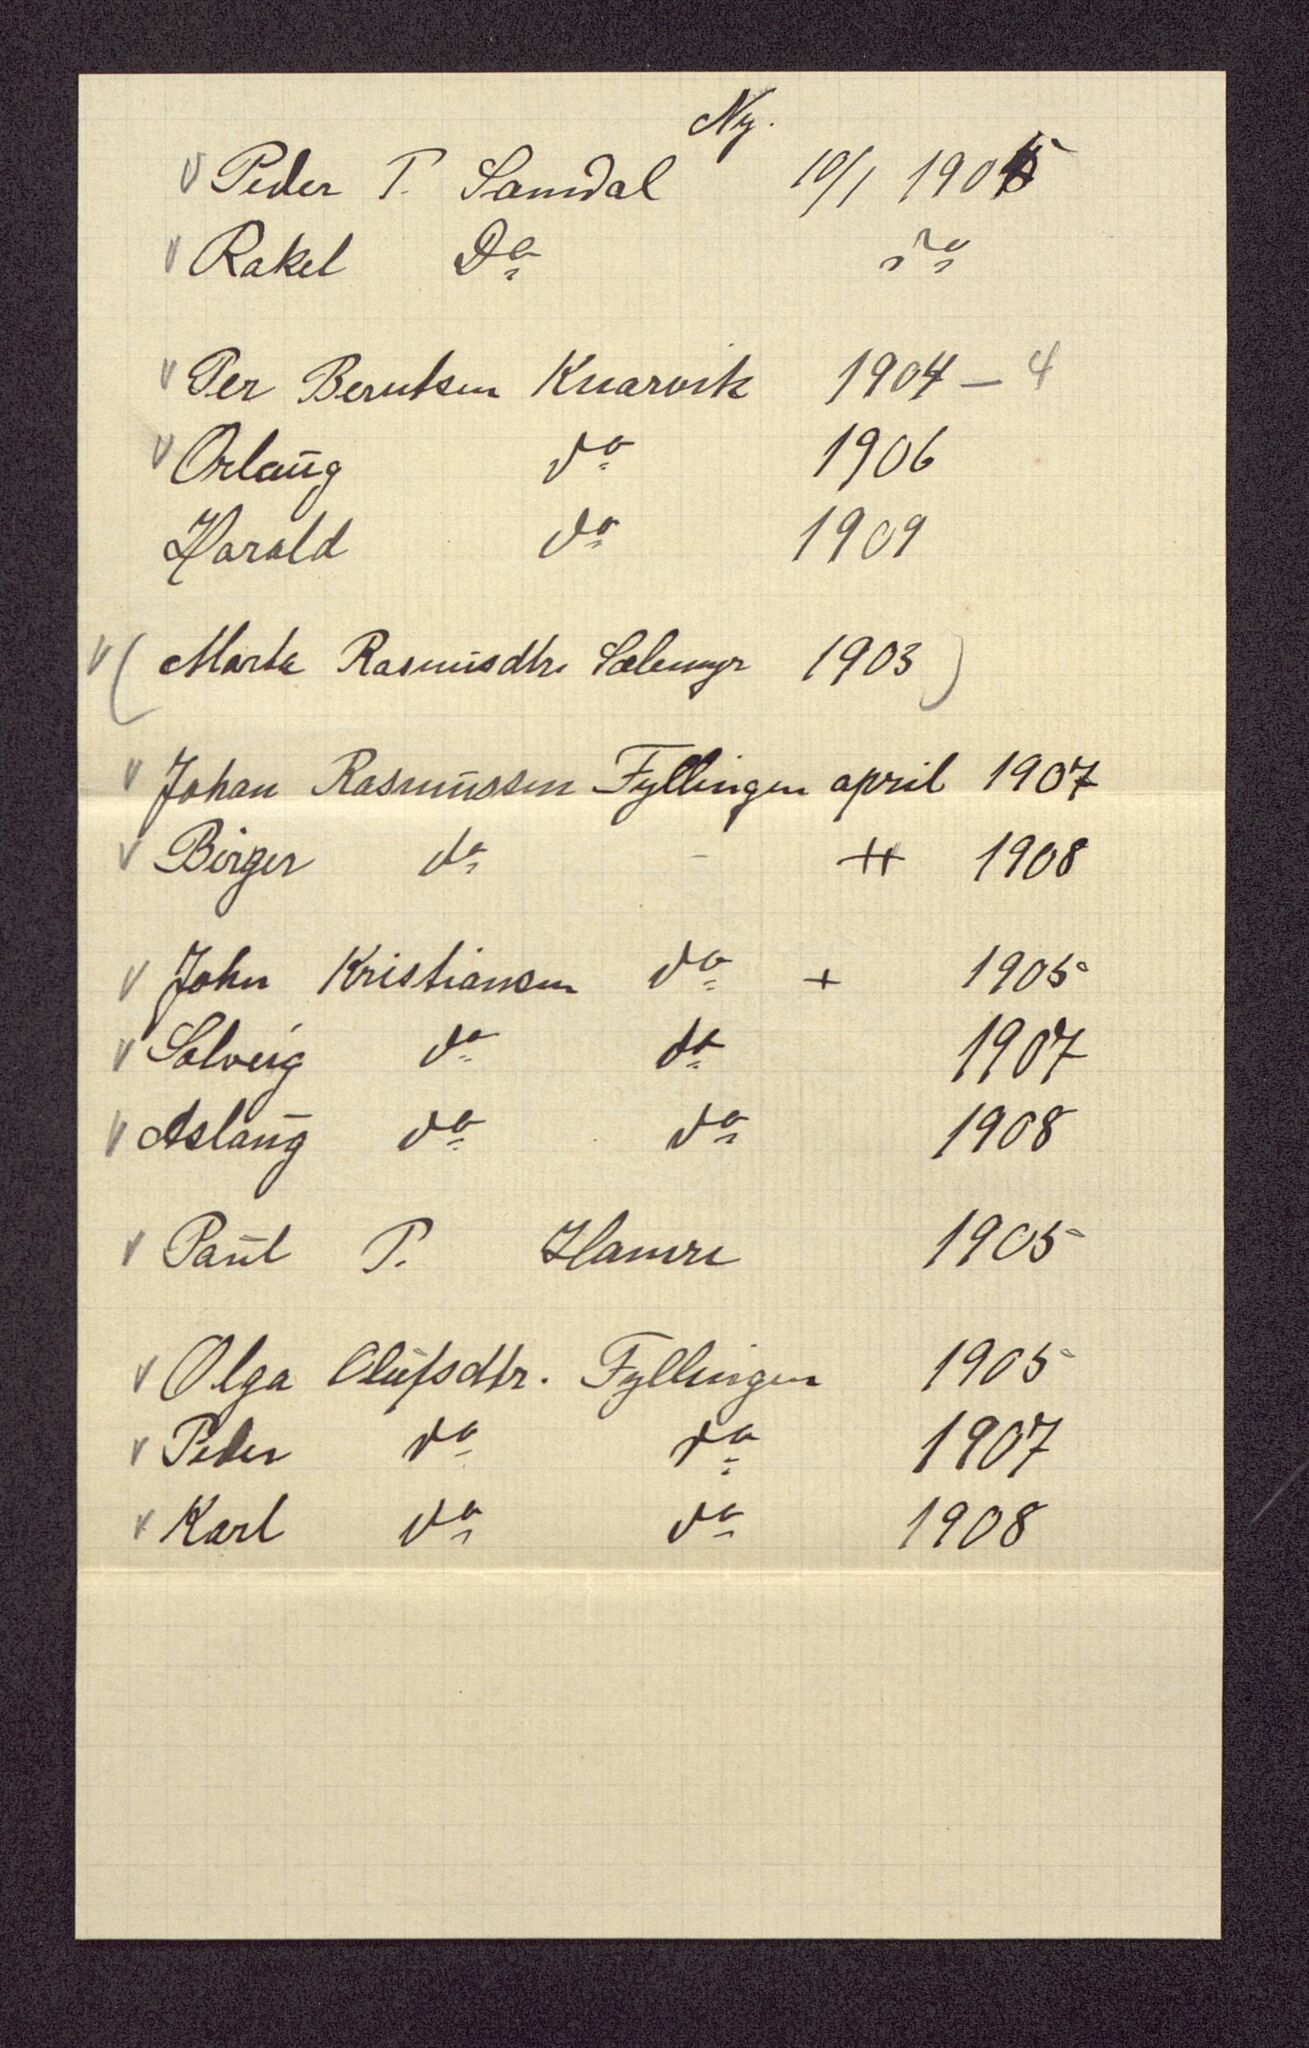 Ny.
v Peder T. Samdal 10/1 1905
v Rakel Do do
v Per Berntsen Knarvik 1904 — 4
v Orlaug do 1906
Harald do 1909
v ( Marta Rasmusdtr. Sælemyr 1903 )
v Johan Rasmussen Fyllingen april 1907
v Birger do - ++ 1908
v John Kristiansen do + 1905
v Solveig do do 1907
v Aslaug do do 1908
v Paul T. Hamre 1905
v Olga Olufsdtr. Fyllingen 1905
v Peder do do 1907
v Karl do do 1908